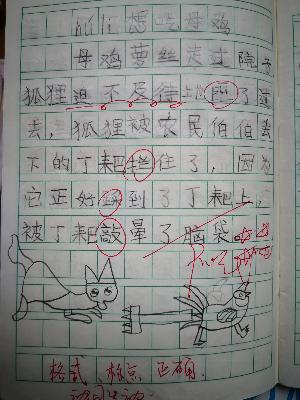 母鸡萝丝走过院子
狐狸迫不及待地闪了过
去，狐狸被农民伯伯丢
下的丁耙拦住了，因为
它正好踩到了丁耙上，
被丁耙敲晕了脑袋。
格式、标点正确。